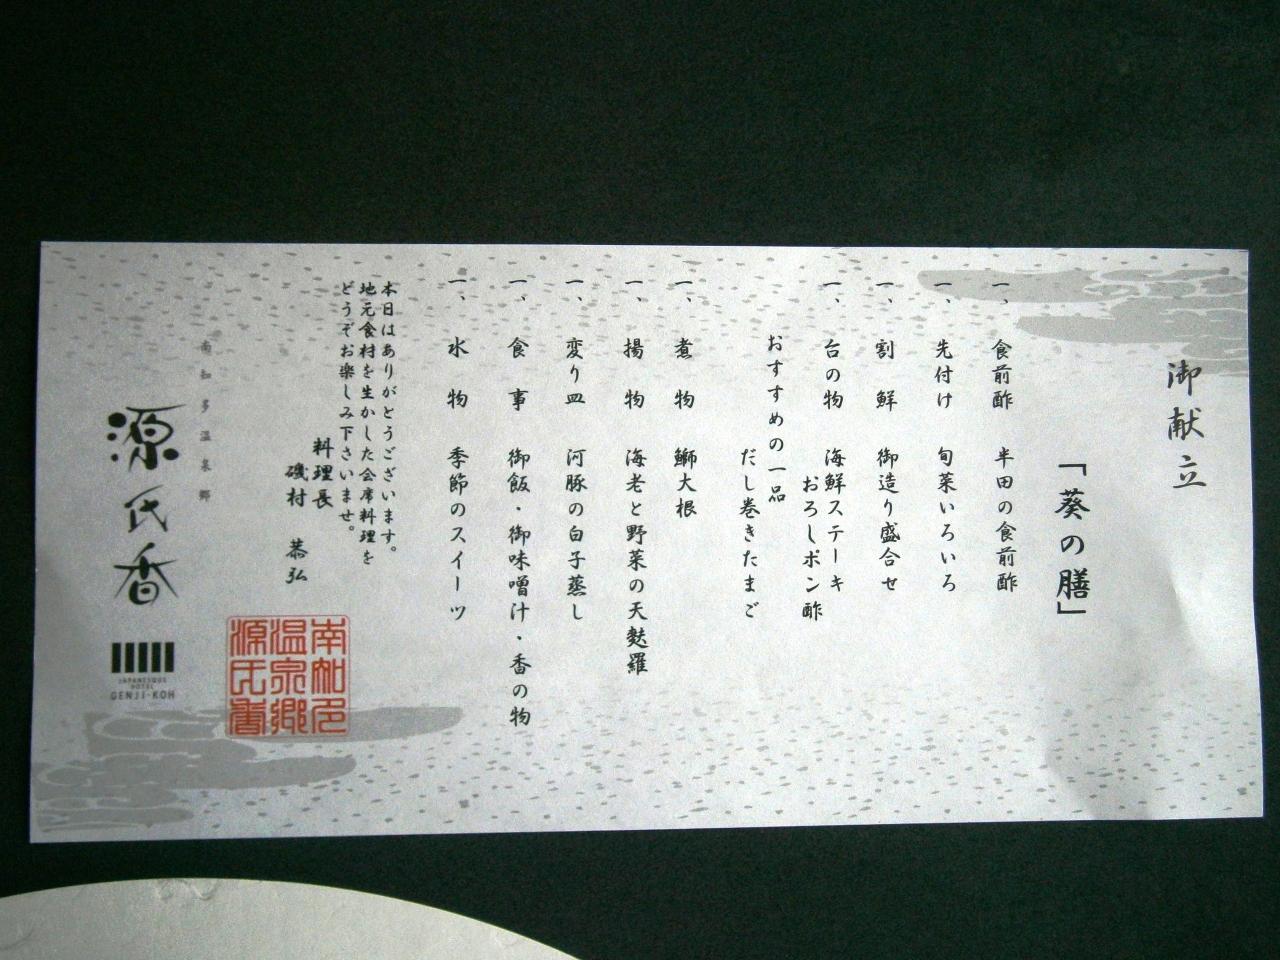 御献立
「葵の膳」
一、食前酢 半田の食前酢
一、先付け 旬菜いろいろ
一、割鮮 御造り盛合せ
一、台の物 海鮮ステーキ
おろしポン酢
おすすめの一品
だし巻きたまご
一、煮物 鰤大根
一、揚物 海老と野菜の天麩羅
一、変り皿 河豚の白子蒸し
一、食事 御飯・御味噌汁・香の物
一、水物 季節のスイーツ
本日はありがとうございます。
地元食材を生かした会席料理を
どうぞお楽しみ下さいませ。
料理長
磯村 恭弘
南知多温泉郷
源氏香
JAPANESQUE
HOTEL
GENJI-KOH
南知多
温泉郷
源氏香